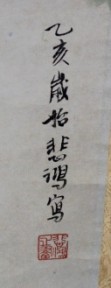 乙亥歲始悲鴻寫